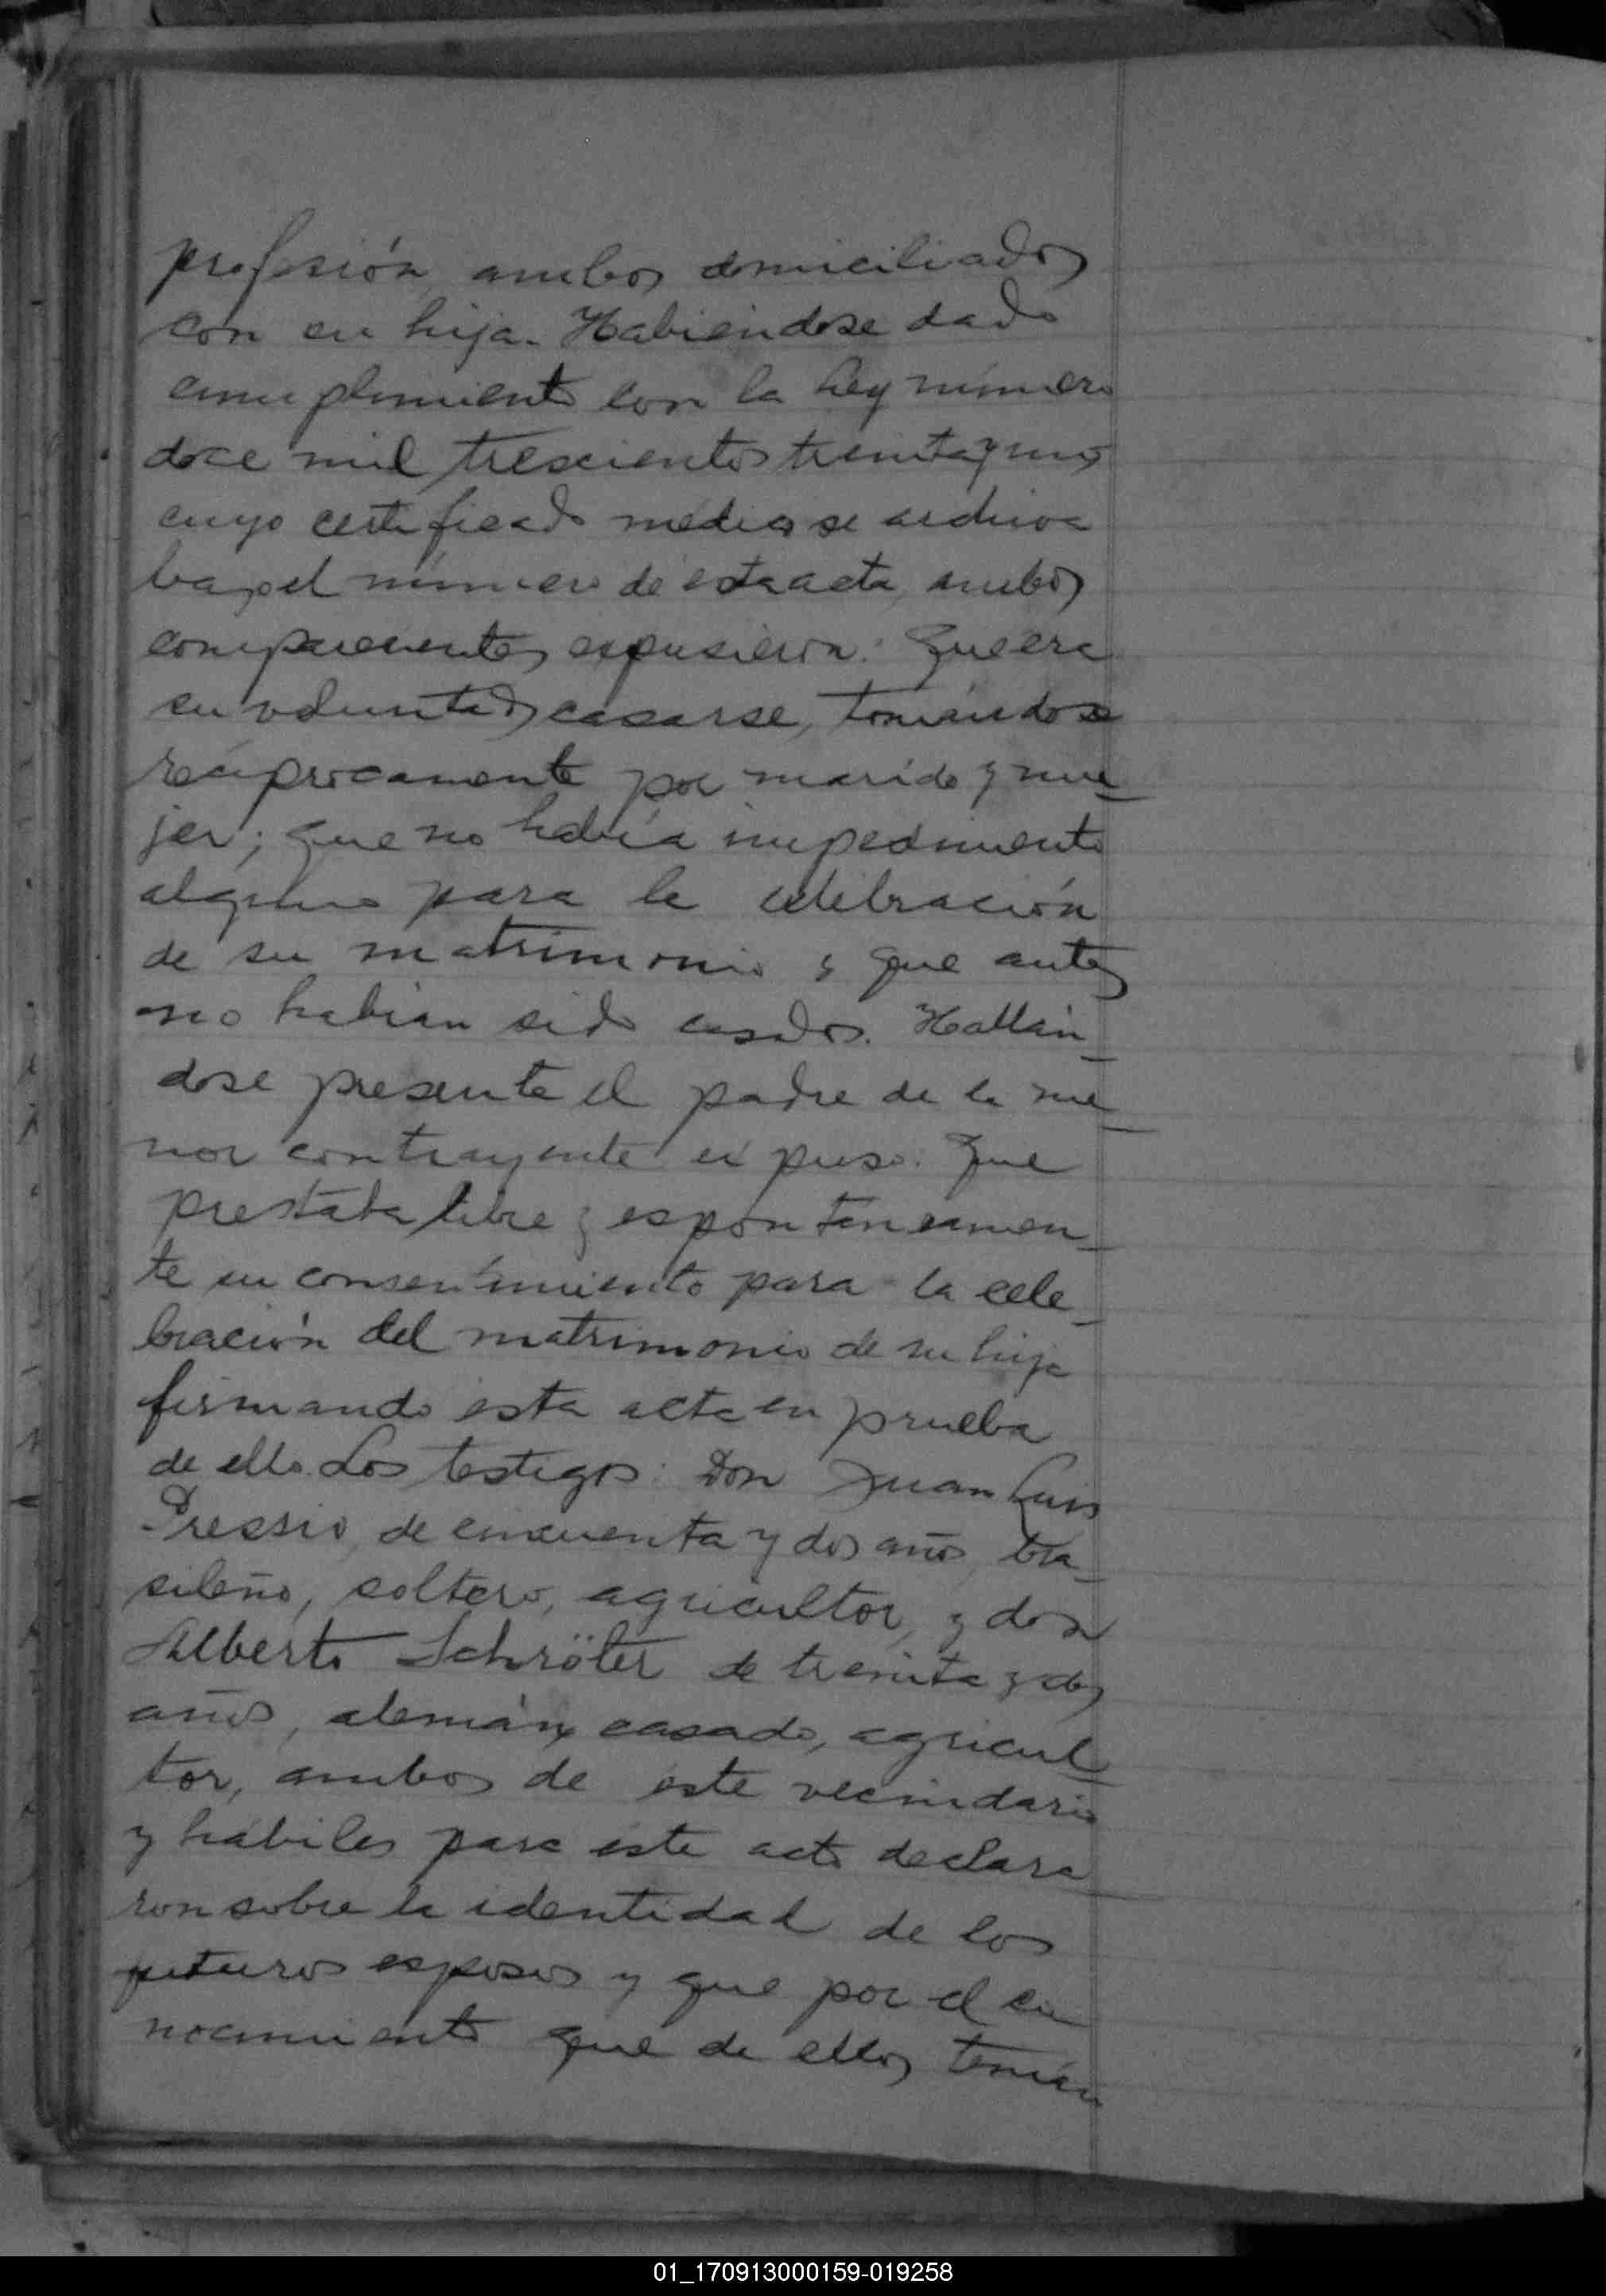 profesión, ambos domiciliados
con su hija. Habiéndose dado
cumplimiento con la Ley número
doce mil trescientos treinta y uno
cuyo certificado médico se archiva
bajo el número de esta acta, ambos
comparecientes expusieron: Que era
su voluntad casarse, tomándose
recíprocamente por marido y mu_
jer; que no había impedimento
alguno para la celebración
de su matrimonio y que antes
no habían sido casados. Hallán_
dose presente el padre de la me_
nor contrayente expuso: Que
prestaba libre y espontáneamen_
te su consentimiento para la cele_
bración del matrimonio de su hija
firmando esta acta en prueba
de ello. Los testigos: Don Juan Luis
Pressio, de cincuenta y dos años, bra_
sileño, soltero, agricultor, y don
Alberto Schröter de treinta y dos
años, alemán, casado, agricul_
tor, ambos de este vecindario
y hábiles para este acto declara
ron sobre la identidad de los
futuros esposos y que por el co
nocimiento que de ellos tenían
01_170913000159-019258